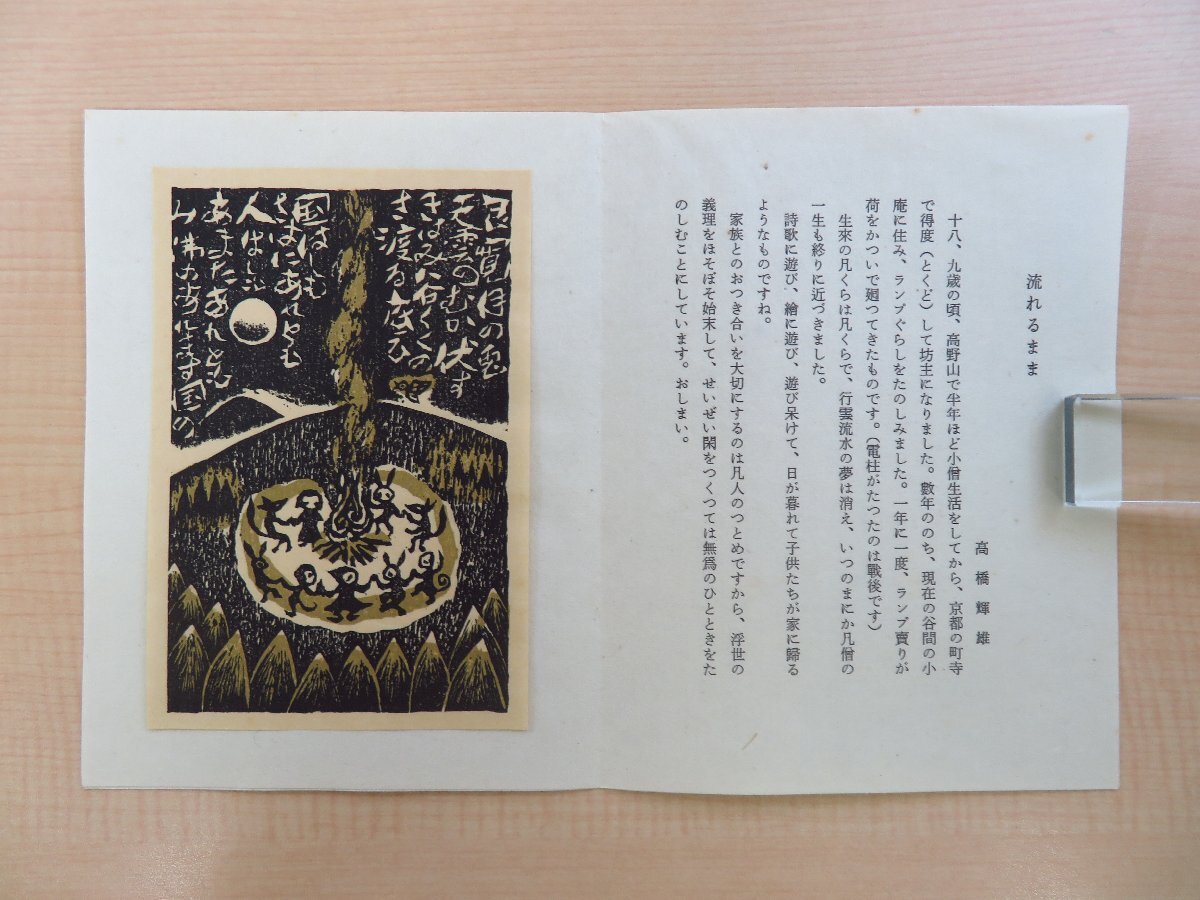 流れるまま
高橋輝雄
十八、九歳の頃、高野山で半年ほど小僧生活をしてから、京都の町寺
で得度（とくど）して坊主になりました。數年ののち、現在の谷間の小
庵に住み、ランプぐらしをたのしみました。一年に一度、ランプ賣りが
荷をかついで廻つてきたものです。（電柱がたつたのは戰後です）
生來の凡くらは凡くらで、行雲流水の夢は消え、いつのまにか凡僧の
一生も終りに近づきました。
詩歌に遊び、繪に遊び、遊び呆けて、日が暮れて子供たちが家に歸る
ようなものですね。
家族とのおつき合いを大切にするのは凡人のつとめですから、浮世の
義理をほそぼそ始末して、せいぜい閑をつくつては無爲のひとときをた
のしむことにしています。おしまい。
天雲のむか伏す
きはみ谷くくの
さ渡る底ひ
国はしも
さはにあれども
人はしも
あまたあれども